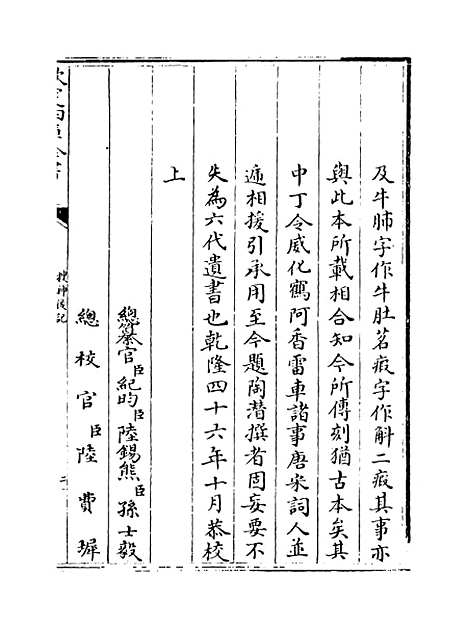 及牛肺字作牛肚茗瘕字作斛二瘕其事亦
與此本所載相合知今所傳刻猶古本矣其
中丁令威化鶴阿香雷車諸事唐宋詞人並
遞相援引承用至今題陶潛撰者固妄要不
失為六代遺書也乾隆四十六年十月恭校
上
總纂官臣紀昀臣陸錫熊臣孫士毅
總校官臣陸費墀
欽定四庫全書
搜神後記